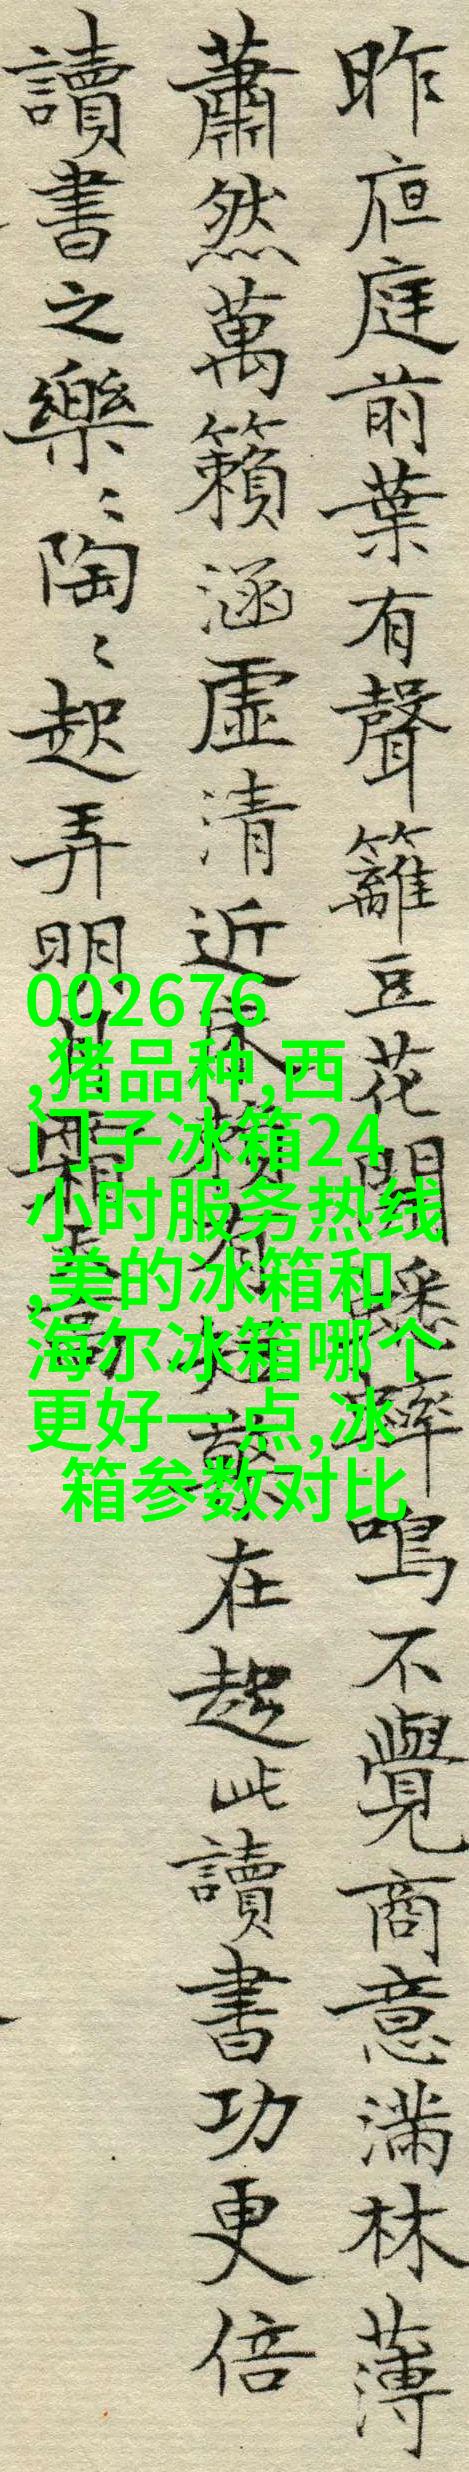 昨夜庭前葉有聲籬豆花開蟋蟀鳴不覺商意滿林薄
蕭然萬籟涵虛清近床賴有短檠在趂此讀書功更倍
讀書之樂〻陶〻起弄明月霜天高
002676
,猪品种,西
门子冰箱24
小时服务热线
,美的冰箱和
海尔冰箱哪个
更好一点,冰
箱参数对比